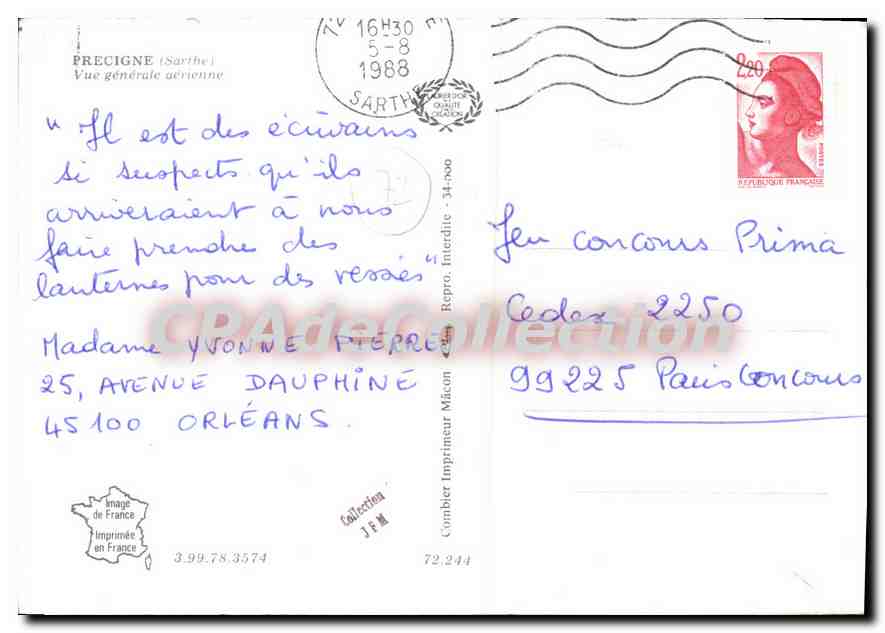 PRECIGNE (Sarthe)
Vue générale aérienne
16H30
5-8
1988
SARTHE
LAURIER D'OR
QUALITÉ
CRÉATION
2,20
POSTES
REPUBLIQUE FRANÇAISE
" Il est des écrivains
si suspects qu'ils
arriveraient à nous
faire prendre des
lanternes pour des vessies"
Madame YVONNE PIERRE
25, AVENUE DAUPHINE
45100 ORLÉANS.
72
Combier Imprimeur Mâcon
Repro. Interdite - 34-600
Jeu concours Prima
Cedex 2250
99225 Paris Concours
CPAdeCollection
Image
de France
Imprimée
en France
3.99.78.3574
Collection
JFM
72.244